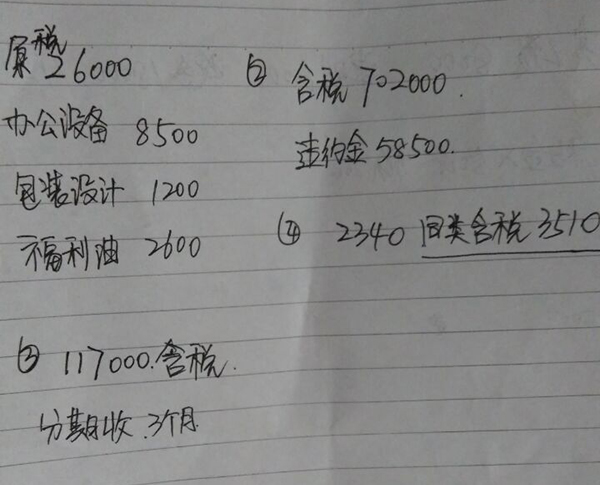 原税 26000
办公设备 8500
包装设计 1200
福利油 2600
② 含税 702000.
违约金 58500.
④ 2340 同类含税 3510
③ 117000.含税.
分期收.3个月